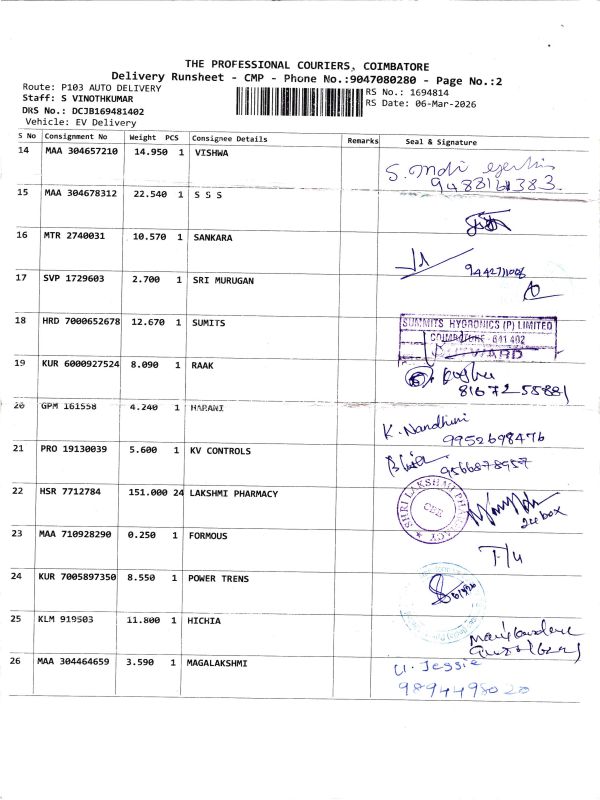 THE PROFESSIONAL COURIERS, COIMBATORE
Delivery Runsheet - CMP - Phone No.:9047080280 - Page No.:2
Route: P103 AUTO DELIVERY
Staff: S VINOTHKUMAR
DRS No.: DCJB169481402
Vehicle: EV Delivery
RS No.: 1694814
RS Date: 06-Mar-2026
S No Consignment No Weight PCS Consignee Details Remarks Seal & Signature
14 MAA 304657210 14.950 1 VISHWA
15 MAA 304678312 22.540 1 S S S
16 MTR 2740031 10.570 1 SANKARA
17 SVP 1729603 2.700 1 SRI MURUGAN
18 HRD 7000652678 12.670 1 SUMITS
SUMMITS HYGRONICS (P) LIMITED
COIMBATORE - 641 402
19 KUR 6000927524 8.090 1 RAAK
8167255881
20 GPM 161558 4.240 1 HARANI
K. Nandhini
9952698476
21 PRO 19130039 5.600 1 KV CONTROLS
9566878957
22 HSR 7712784 151.000 24 LAKSHMI PHARMACY
SHRI LAKSHMI PHARMACY
CBE
24 box
23 MAA 710928290 0.250 1 FORMOUS
24 KUR 7005897350 8.550 1 POWER TRENS
25 KLM 919503 11.800 1 HICHIA
26 MAA 304464659 3.590 1 MAGALAKSHMI
U. Jessie
9894498020